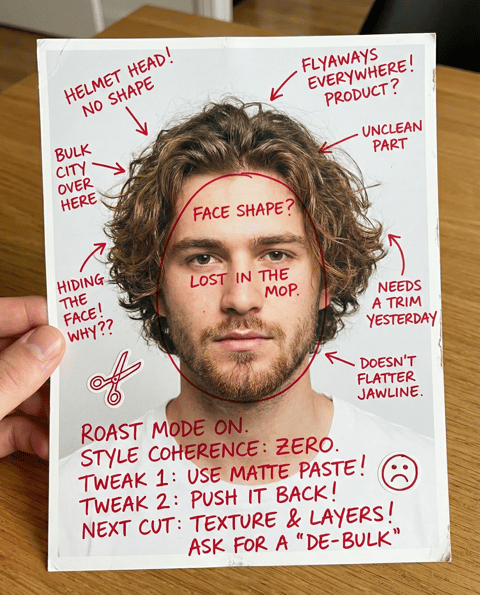 HELMET HEAD!
NO SHAPE
FLYAWAYS
EVERYWHERE!
PRODUCT?
UNCLEAN
PART
BULK
CITY
OVER
HERE
FACE SHAPE?
LOST IN THE
MOP.
HIDING
THE
FACE!
WHY??
NEEDS
A TRIM
YESTERDAY
DOESN'T
FLATTER
JAWLINE.
ROAST MODE ON.
STYLE COHERENCE: ZERO.
TWEAK 1: USE MATTE PASTE!
TWEAK 2: PUSH IT BACK!
NEXT CUT: TEXTURE & LAYERS!
ASK FOR A "DE-BULK"